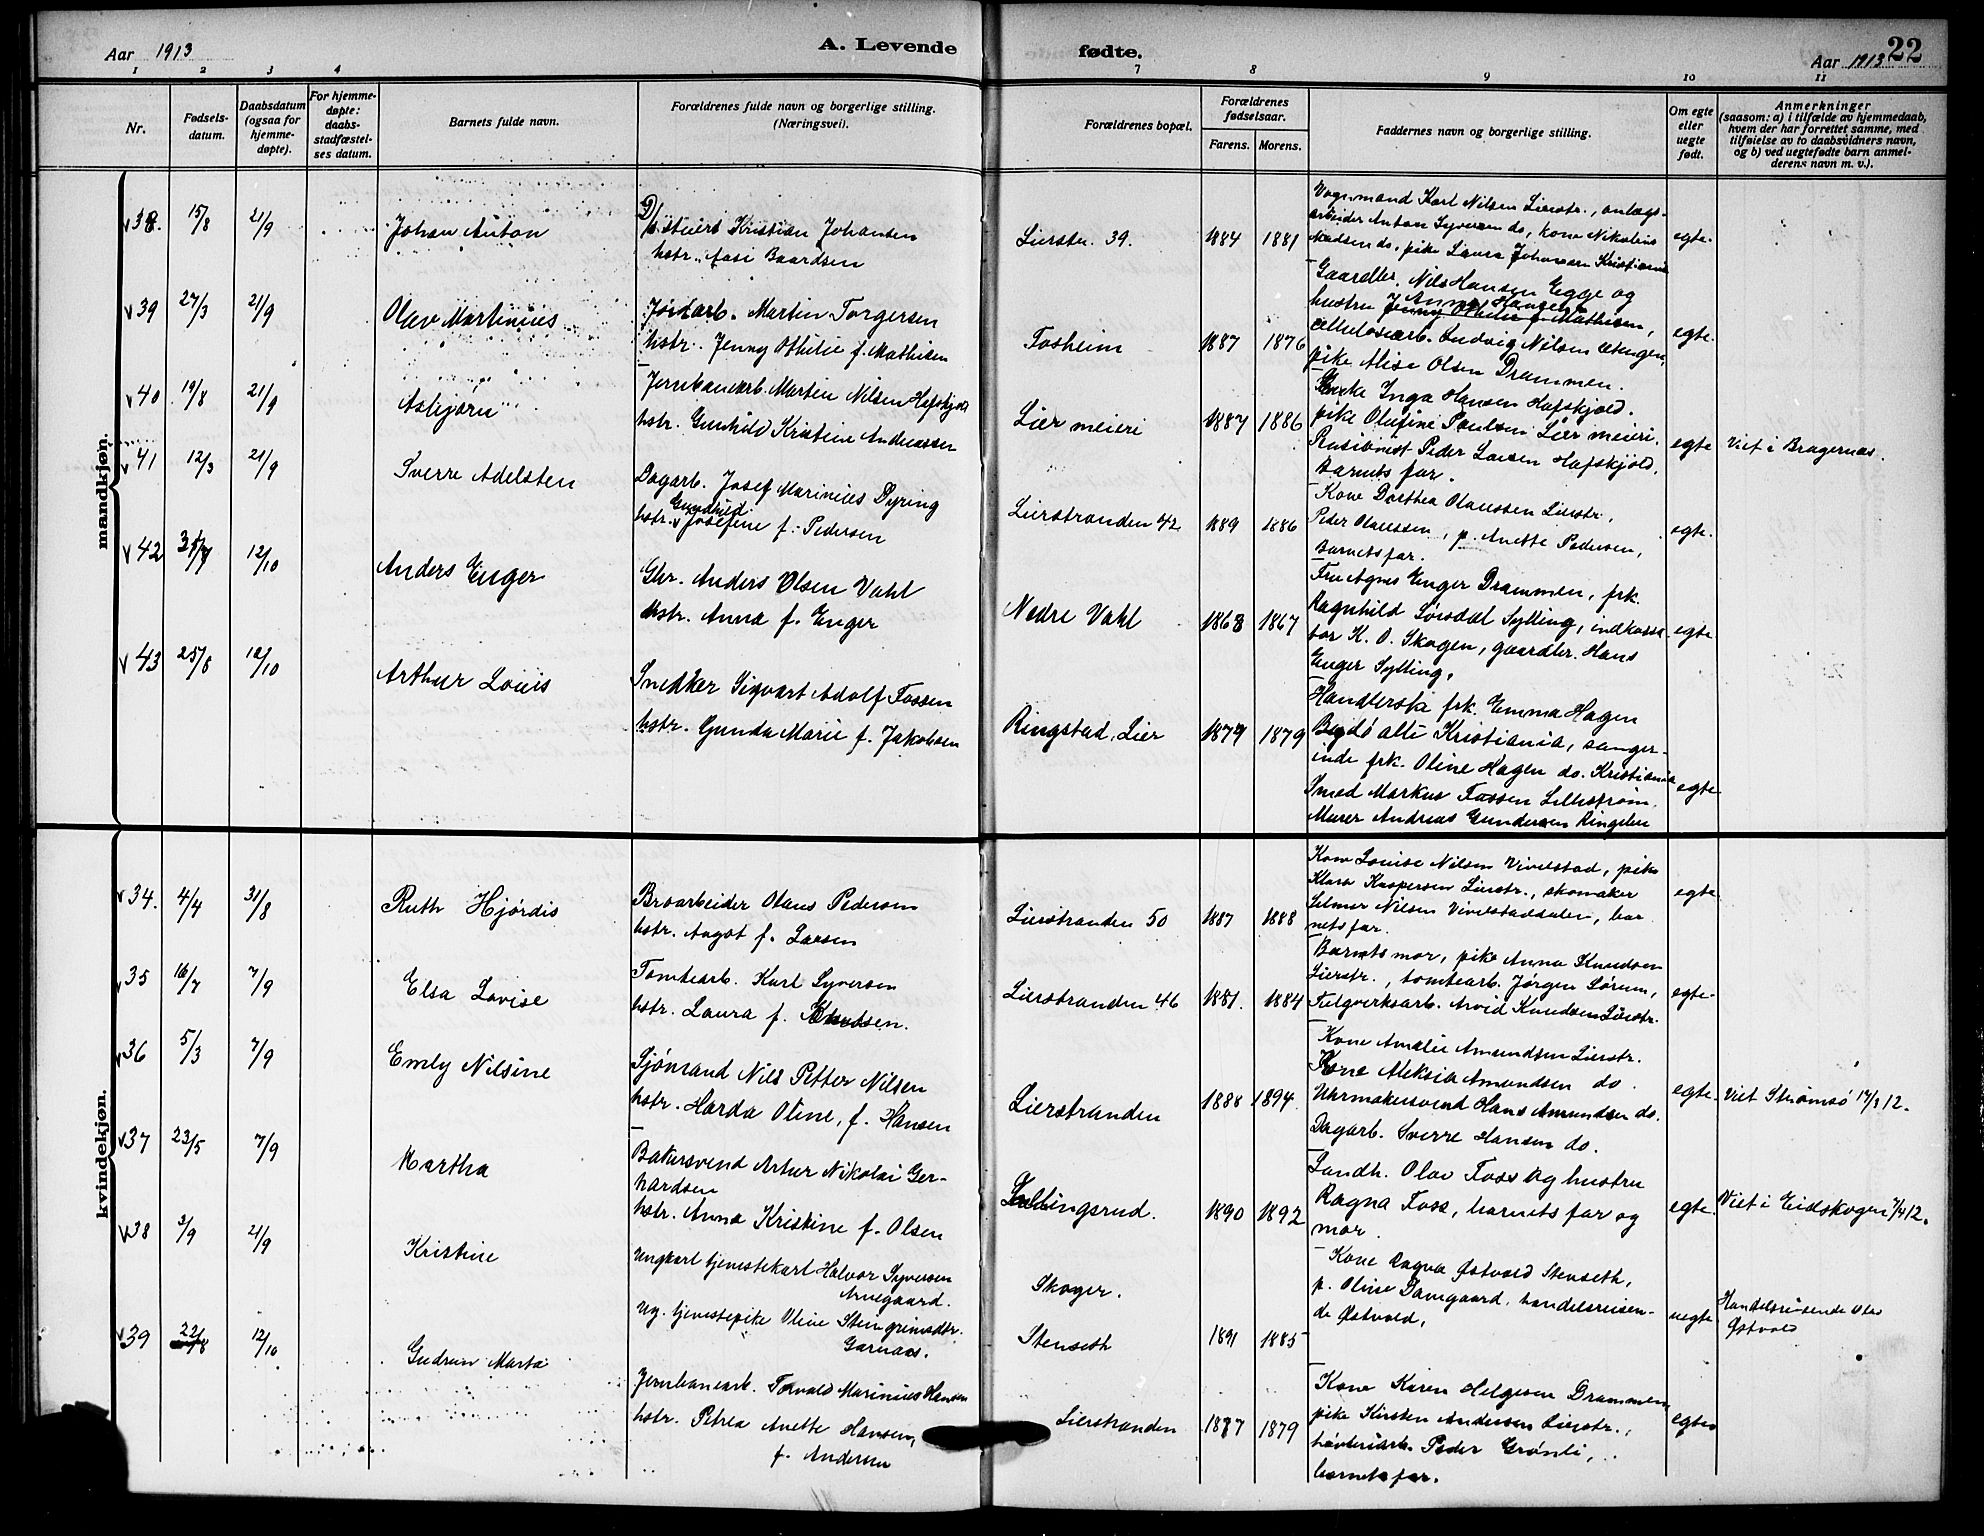 Aar 1913
A. Levende fødte.
Aar 1913
22
1 2 3 4 7 8 9 10 11
Nr.
Fødsels-
datum.
Daabsdatum
(ogsaa for
hjemme-
døpte).
For hjemme-
døpte:
daabs-
stadfæstel-
ses datum.
Barnets fulde navn.
Forældrenes fulde navn og borgerlige stilling.
(Næringsvei).
Forældrenes bopæl.
Forældrenes
fødselsaar.
Farens. Morens.
Faddernes navn og borgerlige stilling.
Om egte
eller
uegte
født.
Anmerkninger
(saasom: a) i tilfælde av hjemmedaab,
hvem der har forrettet samme, med
tilføielse av to daabsvidners navn,
og b) ved uegtefødte barn anmel-
derens navn m. v.).
mandkjøn.
v 38. 15/8 21/9
Johan Anton
Kristian Johansen
hstr. Aasi Baardsen
Lierstr. 39. 1884 1881
Vognmand Karl Nilsen Lierstr., anlægs-
arbeider Anton Syversen do, kone Nikoline
Madsen do, pike Laura Johansen Kristiania
egte.
v 39 27/3 21/9
Olav Martinius
Jordarb. Martin Torgersen
hstr. Jenny Othilie f. Mathisen
Fosheim 1887 1876
Gaardbr. Nils Hansen Egge og
hustru Anna Hansen
Jenny Othilie f. Mathisen,
cellulosearb. Ludvig Nilsen
pike Alise Olsen Drammen.
egte.
v 40 19/8 21/9
Asbjørn
Jernbanearb. Martin Nilsen Hafskjold
hstr. Gunhild Kristine Andreassen
Lier meieri 1887 1886
Inga Hansen Hafskjold.
pike Olufine Paulsen Lier meieri.
Peder Larsen Hafskjold,
Barnets far.
egte Viet i Bragernæs.
v 41 12/3 21/9
Sverre Adelsten
Dagarb. Josef Marinius Dyring
Gunhild
hstr. v Josefine f. Pedersen
Lierstranden 42 1889 1886
Kone Dorthea Olaussen Lierstr.,
Peder Olaussen, p. Anette Pedersen,
Barnets far.
egte.
v 42 12/10
Anders Enger
Gbr. Anders Olsen Vahl
hstr. Anna f. Enger
Nedre Vahl 1868 1867
Fru Agnes Enger Drammen, frk.
Ragnhild Sørsdal Sylling, indkassa
tor K. O. Skogen, gaardbr. Hans
Enger Sylling.
egte
v 43 25/8 12/10
Arthur Louis
Snedker Sigvart Adolf Fossen
hstr. Gunda Marie f. Jakobsen
Ringstad, Lier 1879 1879
Handlerske frk. Emma Hagen
Bygdø alle Kristiania, sanger-
inde frk. Oline Hagen do. Kristiania
Smed Markus Fossen Lillestrøm.
Murer Andreas Gundersen
egte
kvindekjøn.
v 34. 4/4 31/8
Ruth Hjørdis
Broarbeider Olaus Pedersen
hstr. Aagot f. Larsen
Lierstranden 50 1887 1888
Kone Louise Nilsen Vivelstad, pike
Klara Kaspersen Lierstr., skomaker
Hilmar Nilsen Vivelstaddalen, bar
nets far.
egte
v 35 16/7 7/9
Elsa Lovise
Tomtearb. Karl Syversen
hstr. Laura f. Knudsen.
Lierstranden 46 1881. 1884
Barnets mor, pike Anna Knudsen
Lierstr., tomtearb. Jørgen Sørum,
Arvid Knudsen Lierstr.
egte
v 36 5/3 7/9
Emly Nilsine
Sjømand Nils Petter Nilsen
hstr. Harda Oline, f. Hansen
Lierstranden 1888 1894.
Kone Amalie Amundsen Lierstr.
Kone Aleksia Amundsen do.
Uhrmakersvend Hans Amundsen do.
Dagarb. Sverre Hansen do.
egte. Viet Strømsø 12.
v 37 23/5 7/9
Martha
Bakersvend Artur Nikolai Ger-
hardsen
hstr. Anna Kristine f. Olsen
1890 1892
Landh. Olav Foss og hustru
Ragna Foss, barnets far og
mor.
egte. Viet i Eidskogen 12.
v 38 3/9 21/9
Kristine
Ungkarl tjenestekarl Halvor Syversen
Arnegaard.
Ug. tjenestepike Oline Stengrimsdtr.
Garnaas.
Skoger.
Stenseth 1891 1885
Kone Ragna Østvold Stenseth,
p. Oline Damgaard, handelsreisen-
de Østvold,
uegte
Handelsreisende Olav
Østvold
v 39 22/8 12/10
Gudrun Marta
Jernbanearb. Torvald Marinius Hansen
hstr. Petrea Anette Hansen,
f. Andersen
Lierstranden 1877 1879
Kone Karen Helgesen Drammen
pike Kirsten Andersen Lierstr.,
høvleriarb. Peder Grønli,
barnets far.
egte